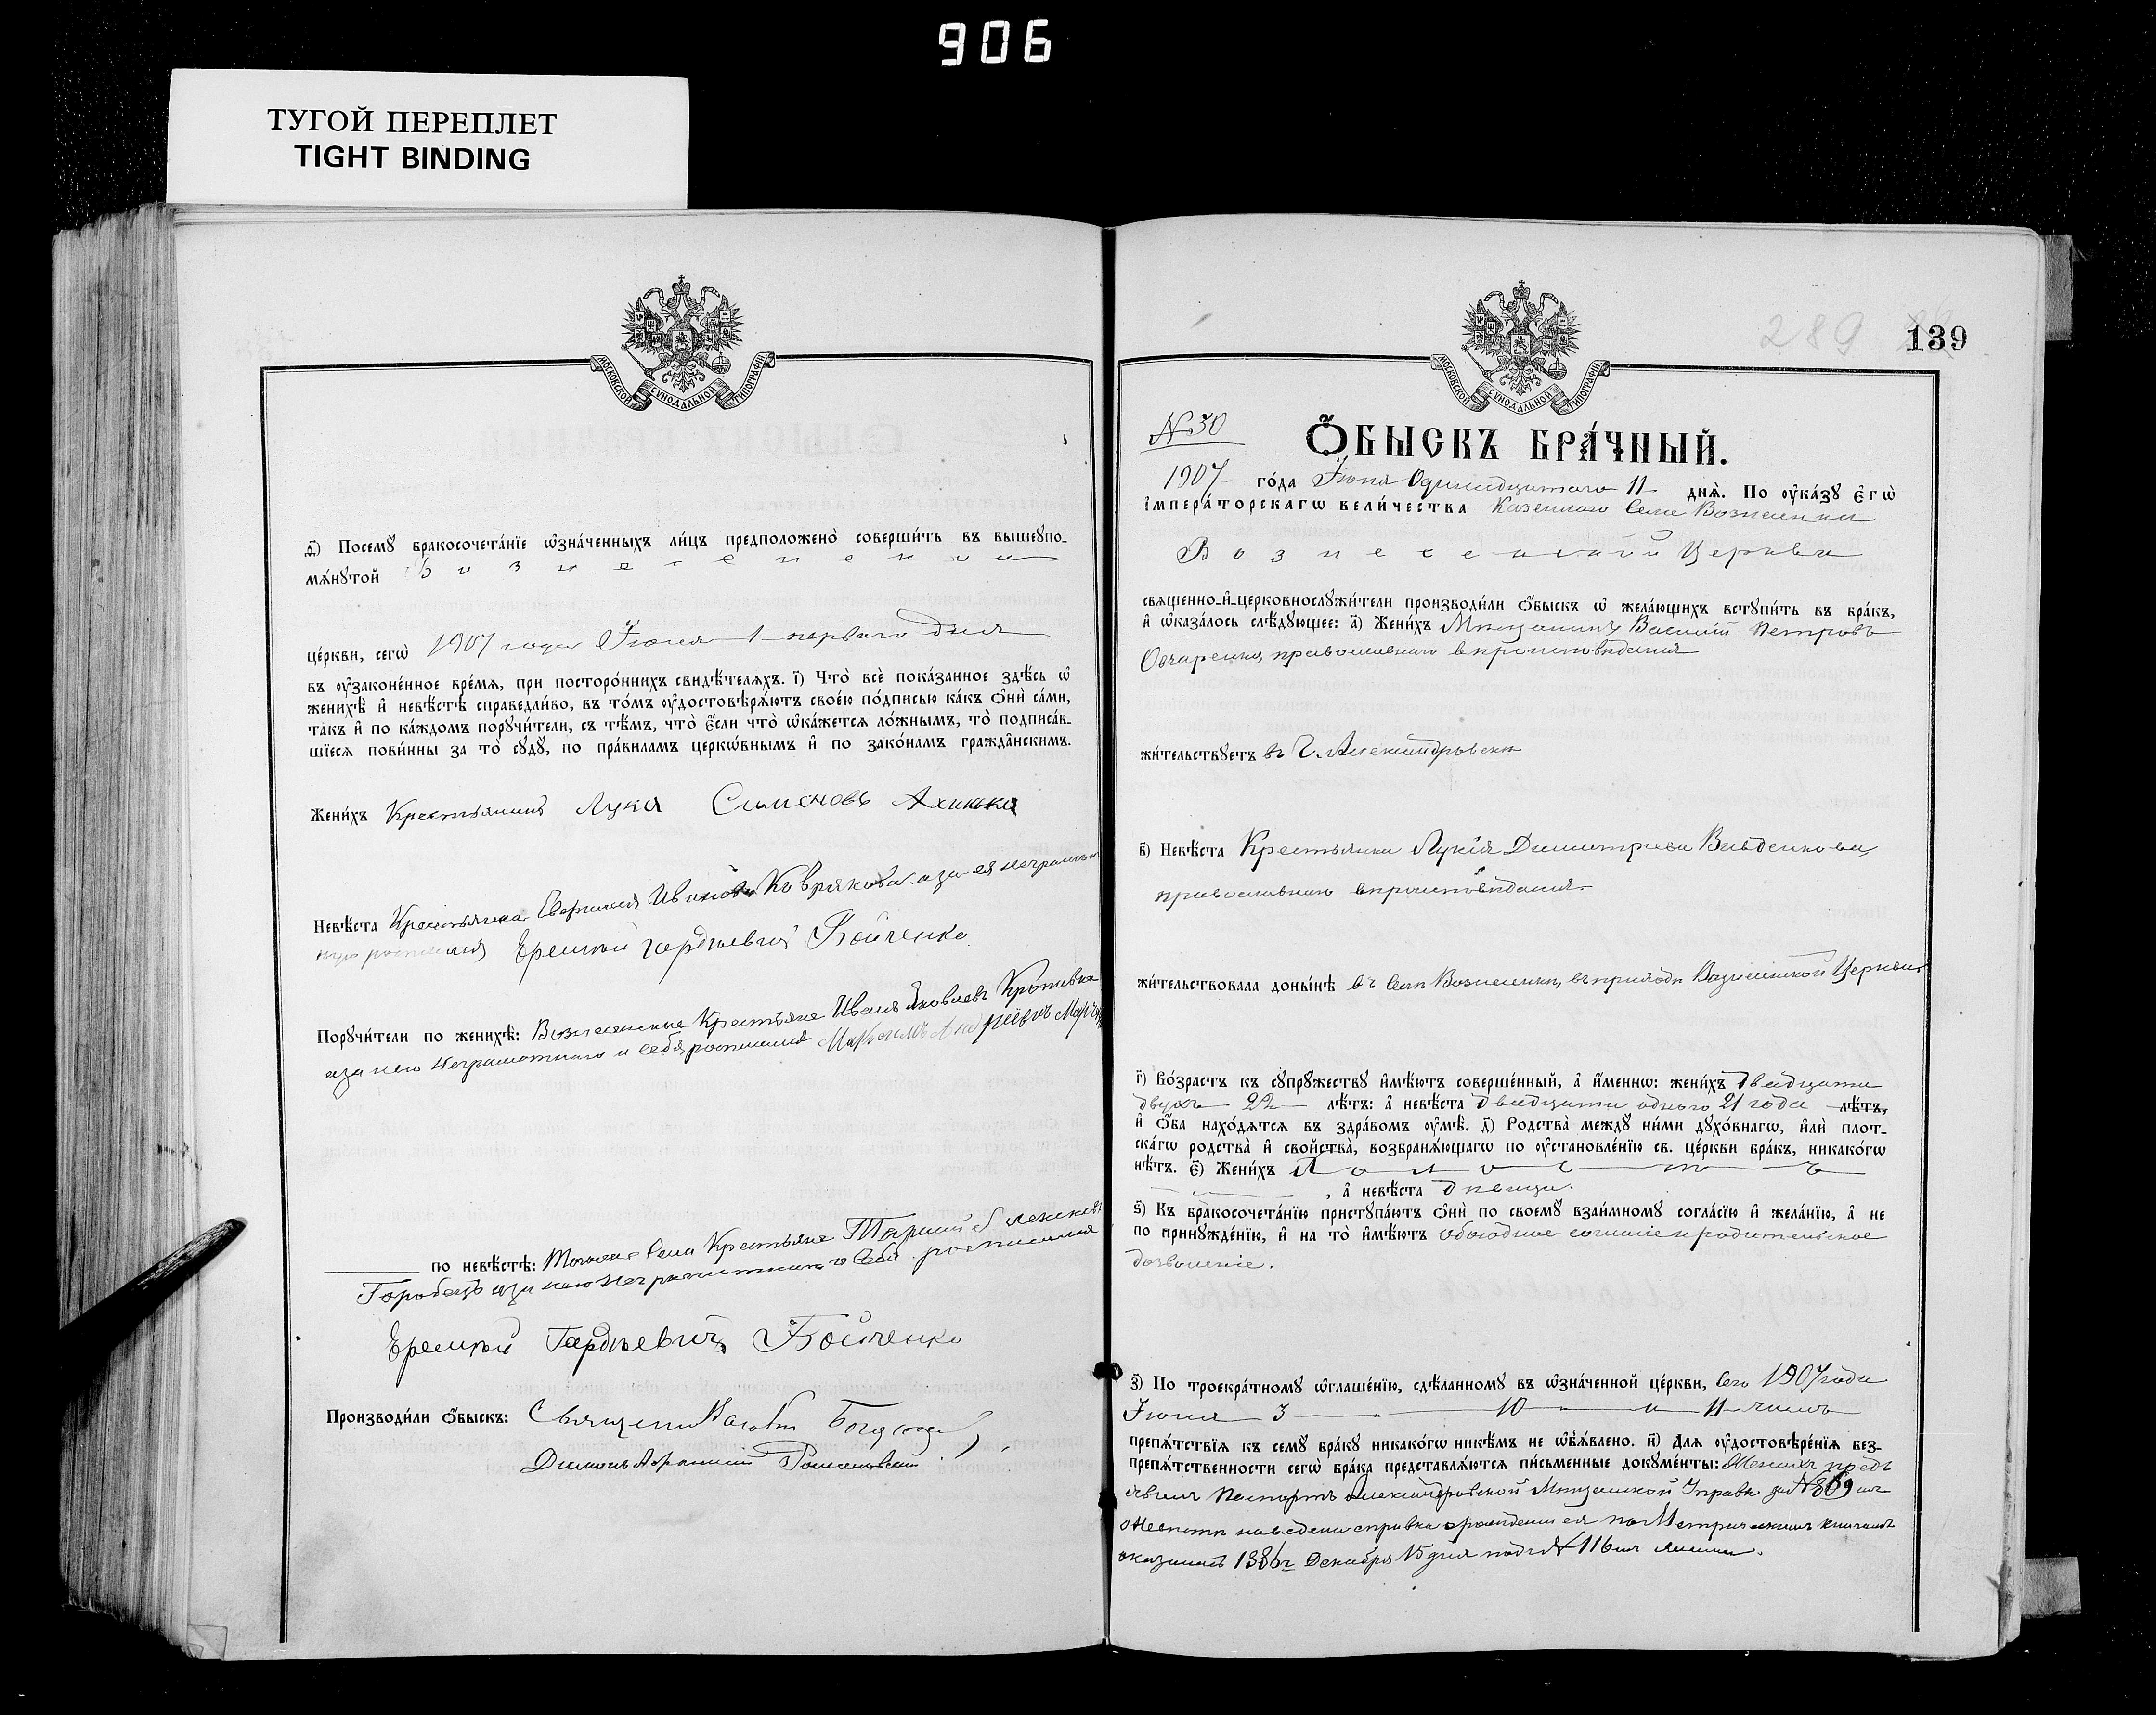 906
ТУГОЙ ПЕРЕПЛЕТ
TIGHT BINDING
МОСКОВСКОЙ СѴНОДАЛЬНОЙ ТИПОГРАФІИ
ѳ҃) Посемꙋ̀ бракосочета́нїе ѡ҆зна́ченныхъ ли́цъ предположено̀ соверши́ть въ вышеꙋпо-
мѧ́нꙋтой Вознесенской
це́ркви, сегѡ̀ 1907 года Іюня 1 перваго дня
въ ᲂу҆зако́нное вре́мѧ, при посторо́ннихъ свидѣ́телѧхъ. і҃) Что̀ всѐ пока́занное здѣ́сь ѡ҆
женихѣ̀ и҆ невѣ́стѣ справедли́во, въ то́мъ ᲂу҆достовѣрѧ́ютъ свое́ю по́дписью ка́къ ѻ҆нѝ са́ми,
та́къ и҆ по ка́ждомъ порꙋчи́тели, съ тѣ́мъ, что̀ є҆́сли что̀ ѡ҆ка́жетсѧ ло́жнымъ, то̀ подписа́в-
шїесѧ пови́нны за то̀ сꙋдꙋ̀, по пра́виламъ церкѡ́внымъ и҆ по зако́намъ гражда̂нскимъ.
Жени́хъ Крестьянинъ Лука Симоновъ
Невѣ́ста Крестьянка Ивановна а за ея неграмот
Еремѣй Гордѣевичъ Бойченко
Порꙋчи́тели по женихѣ̀: Вознесенские Крестьяне Иванъ Яковлевъ Кропивка
а за него неграмотнаго и себя росписался Андреевъ
по невѣ́стѣ: Тогоже Села Крестьяне
Горобецъ а за него неграмотнаго и себя росписался
Еремѣй Гордѣевичъ Бойченко
Производи́ли ѻ҆́быскъ: Священникъ
Діаконъ
289
139
МОСКОВСКОЙ СѴНОДАЛЬНОЙ ТИПОГРАФІИ
№ 30
Ѻ҆́БЫСКЪ БРА́ЧНЫЙ.
1907 го́да Іюня Одинадцатаго 11 днѧ̀. По ᲂу҆ка́зꙋ є҆гѡ̀
і҆мпера́торскагѡ вели́чества Казеннаго Села Вознесенки
Вознесенской Церкви
свѧщенно-и҆-церковнослꙋжи́тели производи́ли ѻ҆́быскъ ѡ҆ жела́ющихъ встꙋпи́ть въ бра́къ,
и҆ ѡ҆каза́лось слѣ́дꙋющее: а҃) Жени́хъ Мѣщанинъ Василій Петровъ
Овчаренко, православнаго вѣроисповѣданія
жи́тельствꙋетъ въ г. Александровскѣ
в҃) Невѣ́ста Крестьянка Лукія Димитріева
православнаго вѣроисповѣданія
жи́тельствовала доны́нѣ въ селѣ Вознесенкѣ, въ приходѣ Вознесенской Церкви
г҃) Во́зрастъ къ сꙋпрꙋ́жествꙋ и҆мѣ́ютъ соверше́нный, а҆ и҆́меннѡ: жени́хъ двадцати
двухъ 22 лѣ́тъ: а҆ невѣ́ста двадцати одного 21 года лѣ́тъ,
и҆ ѻ҆́ба нахо́дѧтсѧ въ здра́вомъ ᲂу҆мѣ̀. д҃) Родства̀ междꙋ̀ ни́ми дꙋхо́внагѡ, и҆лѝ плот-
ска́гѡ родства̀ и҆ свойства̀, возбранѧ́ющагѡ по ᲂу҆становле́нїю св. це́ркви бра́къ, никако́гѡ
нѣ́тъ. є҃) Жени́хъ Холостъ
, а҆ невѣ́ста дѣвица.
ѕ҃) Къ бракосочета́нїю пристꙋпа́ютъ ѻ҆нѝ по своемꙋ̀ взаи́мномꙋ согла́сїю и҆ жела́нїю, а҆ не
по принꙋжде́нїю, и҆ на то̀ и҆мѣ́ютъ обоюдное согласіе и родительское
дозволеніе.
з҃) По троекра́тномꙋ ѡ҆глаше́нїю, сдѣ́ланномꙋ въ ѡ҆зна́ченной це́ркви, сего 1907 года
Іюня 3 " 10 " и 11 числъ
препѧ́тствїѧ къ семꙋ̀ бра́кꙋ никако́гѡ никѣ́мъ не ѡ҆б̾ѧ́влено. и҃) Длѧ ᲂу҆достовѣре́нїѧ без-
препѧ́тственности сегѡ̀ бра́ка представлѧ́ютсѧ пи́сьменные докꙋме́нты: Женихъ предъ
явилъ Паспортъ Александровской Мѣщанской Управы за № 869
о невѣстѣ наведена справка о рожденіи ея по Метрическимъ книгамъ
оказалось 1886 г. Декабря 15 дня подъ № 116